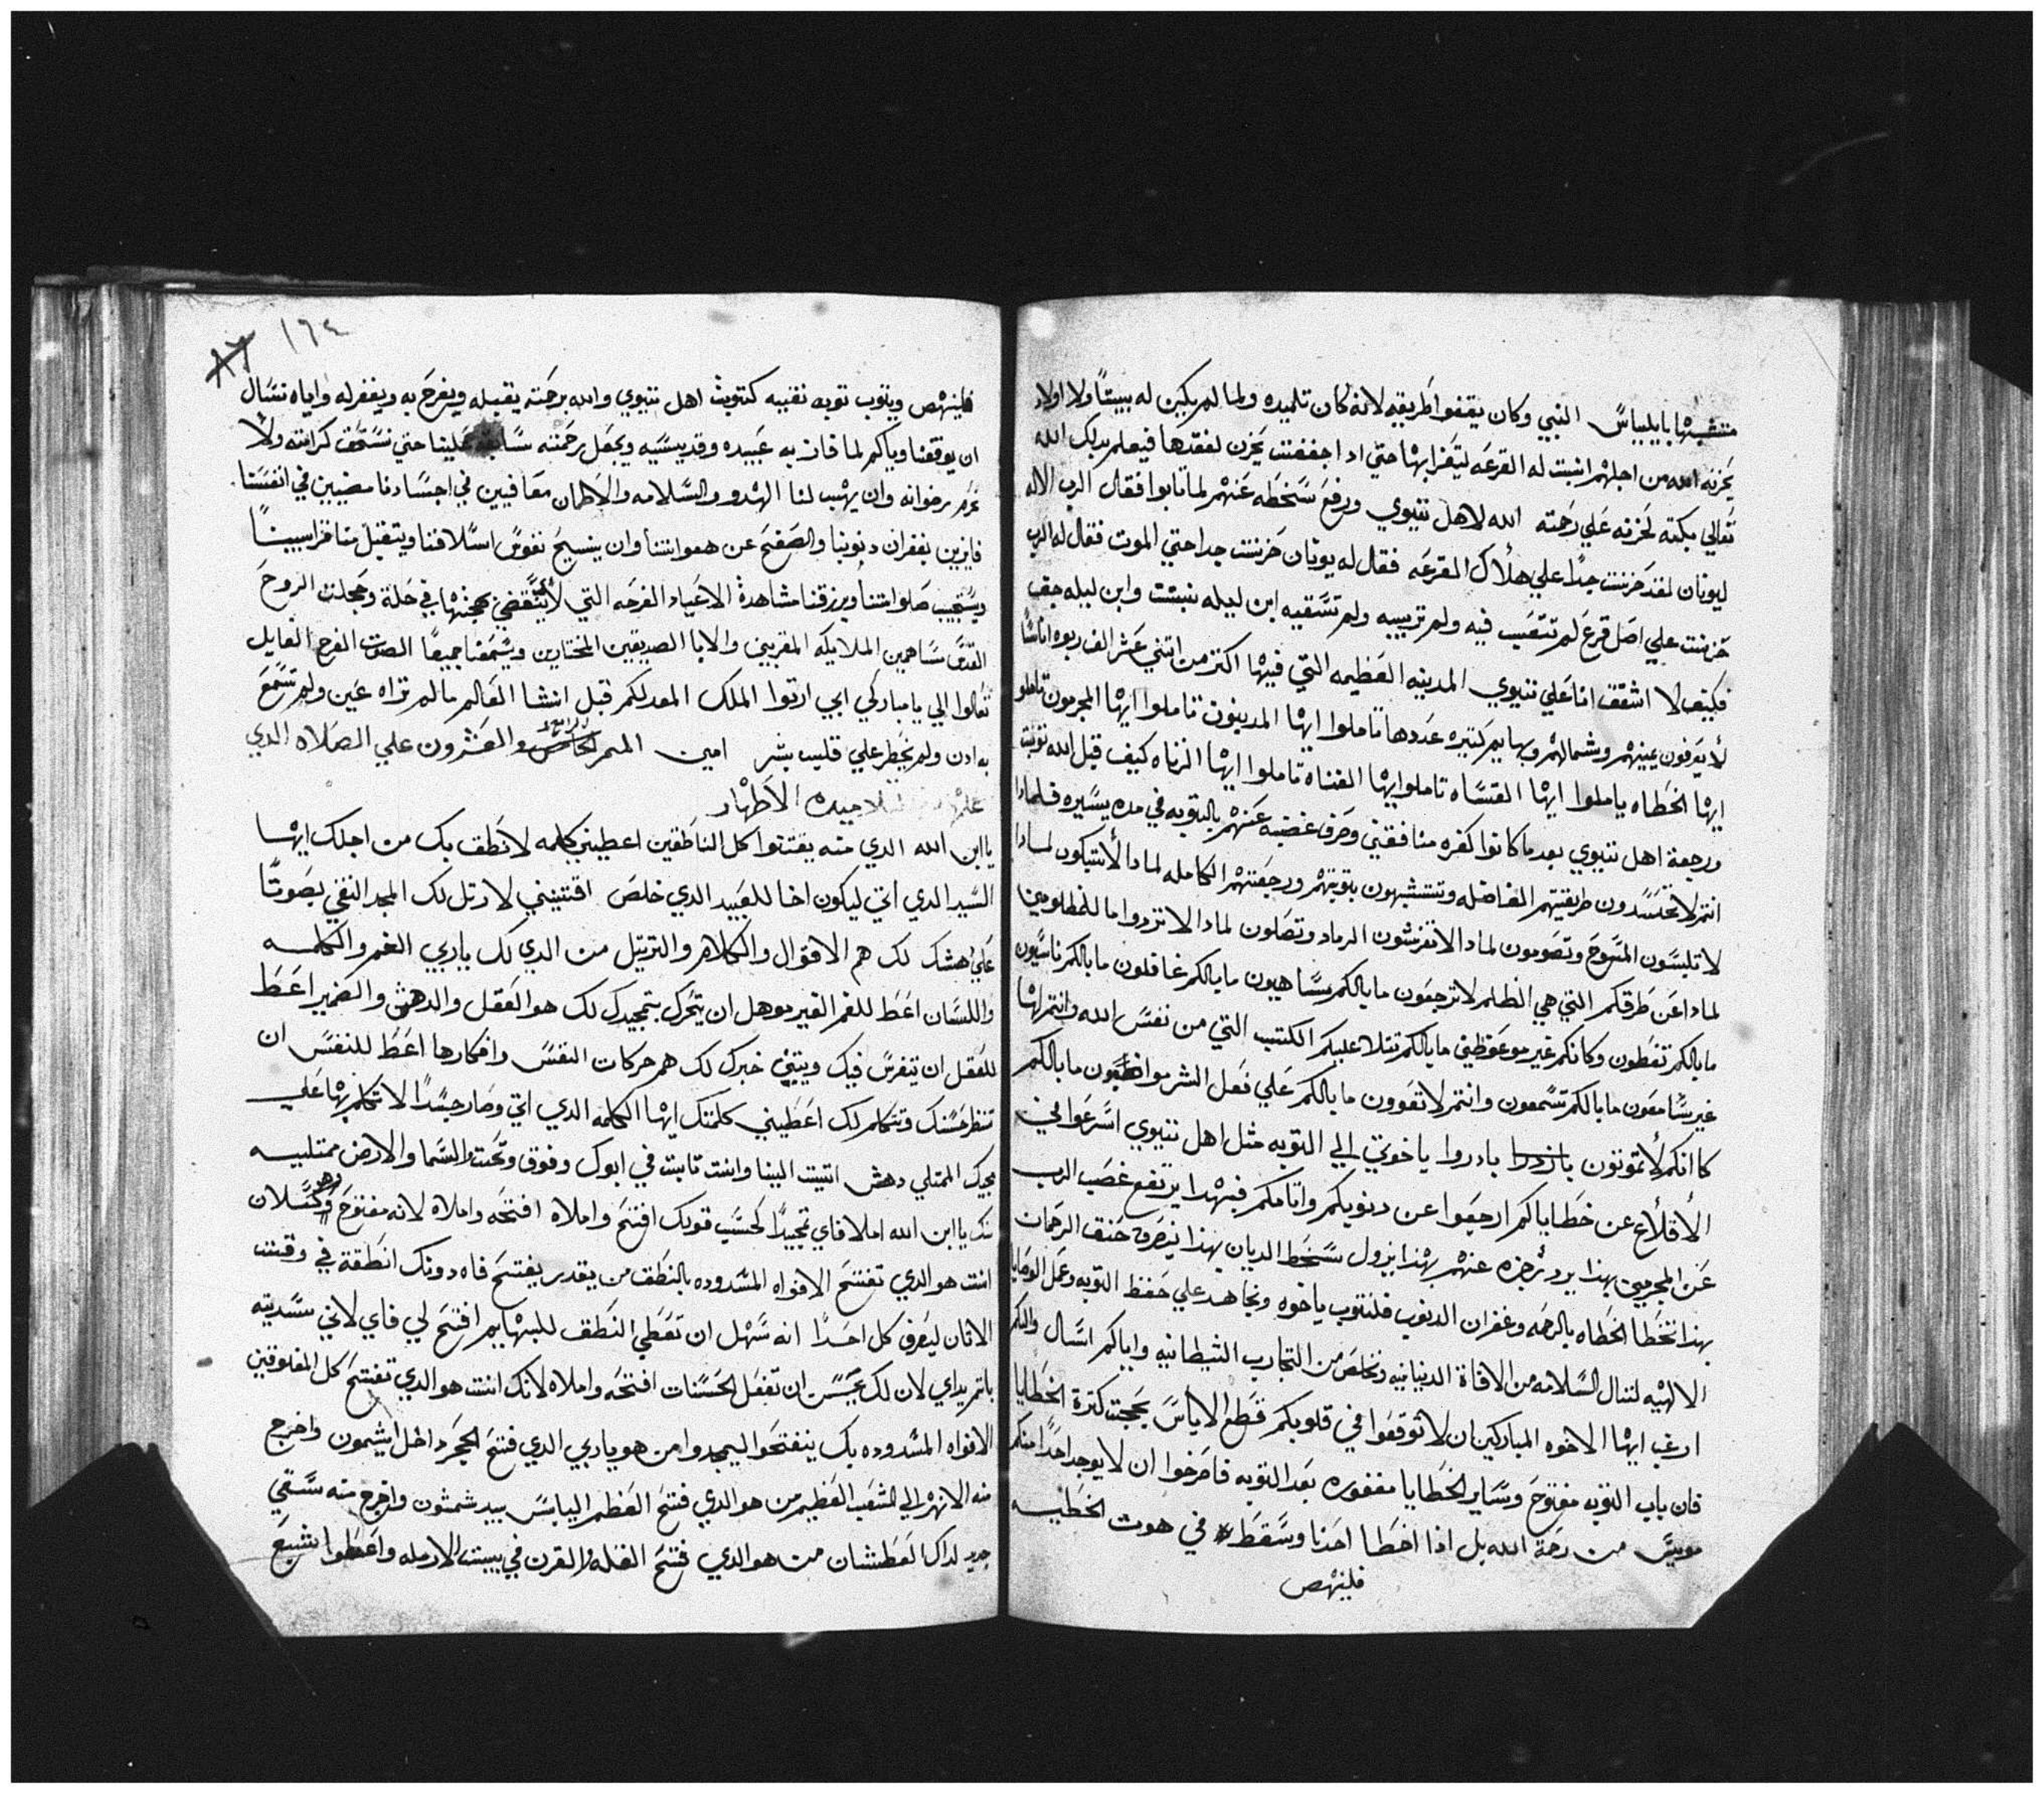 متشبها بايلياس النبي وكان يقفوا طريقه لانه كان تلميده ولما لم يكين له بيتًا ولا اولاد
يحزنه الله من اجلهم انبت له القرعه ليتعزا بها حتي ادا جففت يحزن لفقدها فيعلم بدلك الله
تعالي بكته لحزنه علي رحمته الله لاهل نينوي ورفع سخطه عنهم لما تابوا فقال الرب الاله
ليونان لقد حزنت جدًا علي هلاك القرعه فقال له يونان حزنت جدا حتي الموت فقال له الرب
حزنت علي اصل قرع لم تتعب فيه ولم تربيه ولم تسقيه ابن ليله نبتت وابن ليله جف
فكيف لا اشفق انا علي نينوي المدينه العظيمه التي فيها اكتر من اتني عشر الف ربوه اناسًا
لا يعرفون يمينهم وشمالهم وبهايم كتيره عددها تاملوا ايها المدينون تاملوا ايها المجرمون تاملوا
ايها الخطاه ياملوا ايها القساه تاملوا ايها العناه تاملوا ايها الزناه كيف قبل الله توبت
ورجعة اهل نينوي بعد ما كانوا كفره منافقين وصرف غضبه عنهم بالتوبه في مده يسيره فلمادا
انتم لا تحسدون طريقتهم الفاضله وتتشبهون بتوبتهم ورجعتهم الكامله لمادا لا تبكون لمادا
لا تلبسون المسوح وتصومون لمادا لا تفرشون الرماد وتصلون لمادا لا تردوا ما للمظلومين
لمادا عن طرقكم التي هي الظلم لا ترجعون ما بالكم ساهيون ما بالكم غافلون ما بالكم ناسيون
ما بالكم تغطون وكانكم غير موعوظين ما بالكم تتلا عليكم الكتب التي من نفس الله وانتم لها
غير سامعون ما بالكم تسمعون وانتم لا تعوون ما بالكم علي فعل الشر مواظبون ما بالكم
كاانكم لا تموتون بادروا ياخوتي الي التوبه متل اهل نينوي اسرعوا في
الاقلاع عن خطاياكم ارجعوا عن دنوبكم واتامكم فبهدا يرتفع غضب الرب
عن المجرمين بهدا يرد زجره عنهم بهدا يزول سخط الديان بهدا ينصرف حنق الرحمان
بهدا تحظا الخطاه بالرحمه وغفران الدنوب فلنتوب ياخوه ونجاهد علي حفظ التوبه وعمل الوصايا
الالهيه لننال السلامه من الافاة الدنيانيه ونخلص من التجارب الشيطانيه واياكم اسال واليكم
ارغب ايها الاخوه المباركين ان لا توقعوا في قلوبكم قطع الاياس بحجت كترة الخطايا
فان باب التوبه مفتوح وساير الخطايا مغفوره بعد التوبه فاحرصوا ان لا يوجد احدًا منكم
مويس من رحمة الله بل اذا اخطا احدنا وسقط في هوت الخطيه
فلينهص
١٦٤
٨٧
فلينهص ويتوب توبه نقيه كتوبت اهل نينوي والله برحمته يقبله ويفرح به ويغفر له واياه نسال
ان يوفقنا وياكم لما فاز به عبيده وقديسيه ويجعل برحمته علينا حتي نستحق كرامته ولا
نحرم رضوانه وان يهب لنا الهدو والسلامه والاطمان معافيين في اجسادنا مضيين في انفسنا
فايزين بغفران دنوبنا والصفح عن هفواتنا وان ينيح نفوس اسلافنا ويتقبل منا قرابيننا
ويستجيب صلواتنا ويرزقنا مشاهدة الاعياد الفرحه التي لا ينقضي بهجتها في حلة وحجلت الروح
القدس مساهمين الملايكه المقربين والابا الصديقين المختارين ويسمعنا جميعًا الصوت الفرح القايل
تعالوا الي يا مباركي ابي ارتوا الملك المعد لكم قبل انشا العالم ما لم تراه عين ولم تسمع
به ادن ولم يخطر علي قلب بشر امين الميمر الرابع والعشرون علي الصلاه الدي
علمها لتلاميده الاطهار
ياابن الله الدي منه يقتنوا كل الناطقين اعطيني كلمه لانطق بك من اجلك ايها
السيد الدي اتي ليكون اخا للعبيد الدي خلص اقتنيني لارتل لك المجد النقي بصوتًا
علي دهشك لك هم الاقوال والكلام والترتيل من الدي لك ياربي الفم والكلمه
واللسان اعط للفم الغير موهل ان يتحرك بتمجيدك لك هو العقل والدهش والضمير اعط
للعقل ان يتفرس فيك ويتين خبرك لك هم حركات النفس وافكارها اعط للنفس ان
تنظر حسنك وتتكلم لك اعطيني كلمتك ايها الكلمه الدي اتي وصار جسدًا لاتكلم بها علي
مجيك الممتلي دهش اتيت الينا وانت تابت في ابوك وفوق وتحت والسما والارض ممتليه
منك ياابن الله املا فاي تمجيدًا لحسب قوتك افتح واملاه افتحه واملاه لانه مفتوح وهو كسلان
انت هو الدي تفتح الافواه المسدوده بالنطق من يقدر يفتح فاه دونك انطقة في وقت
الاتان ليعرف كل احدًا انه سهل ان تعطي النطق للبهايم افتح لي فاي لاني سديته
باتمر يداي لان لك يحسن ان تفعل الحسنات افتحه واملاه لانك انت هو الدي تفتح كل المغلوقين
الافواه المسدوده بك ينفتحوا ليمجدوا من هو ياربي الدي فتح الحجر داخل ايشمون واخرج
منه الانهر الي الشعب العظيم من هو الدي فتح العظم اليابس بيد شمشون واخرج منه سقي
جديد لداك العطشان من هو الدي فتح القله والقرن في بيت الارمله واعطوا بشبع